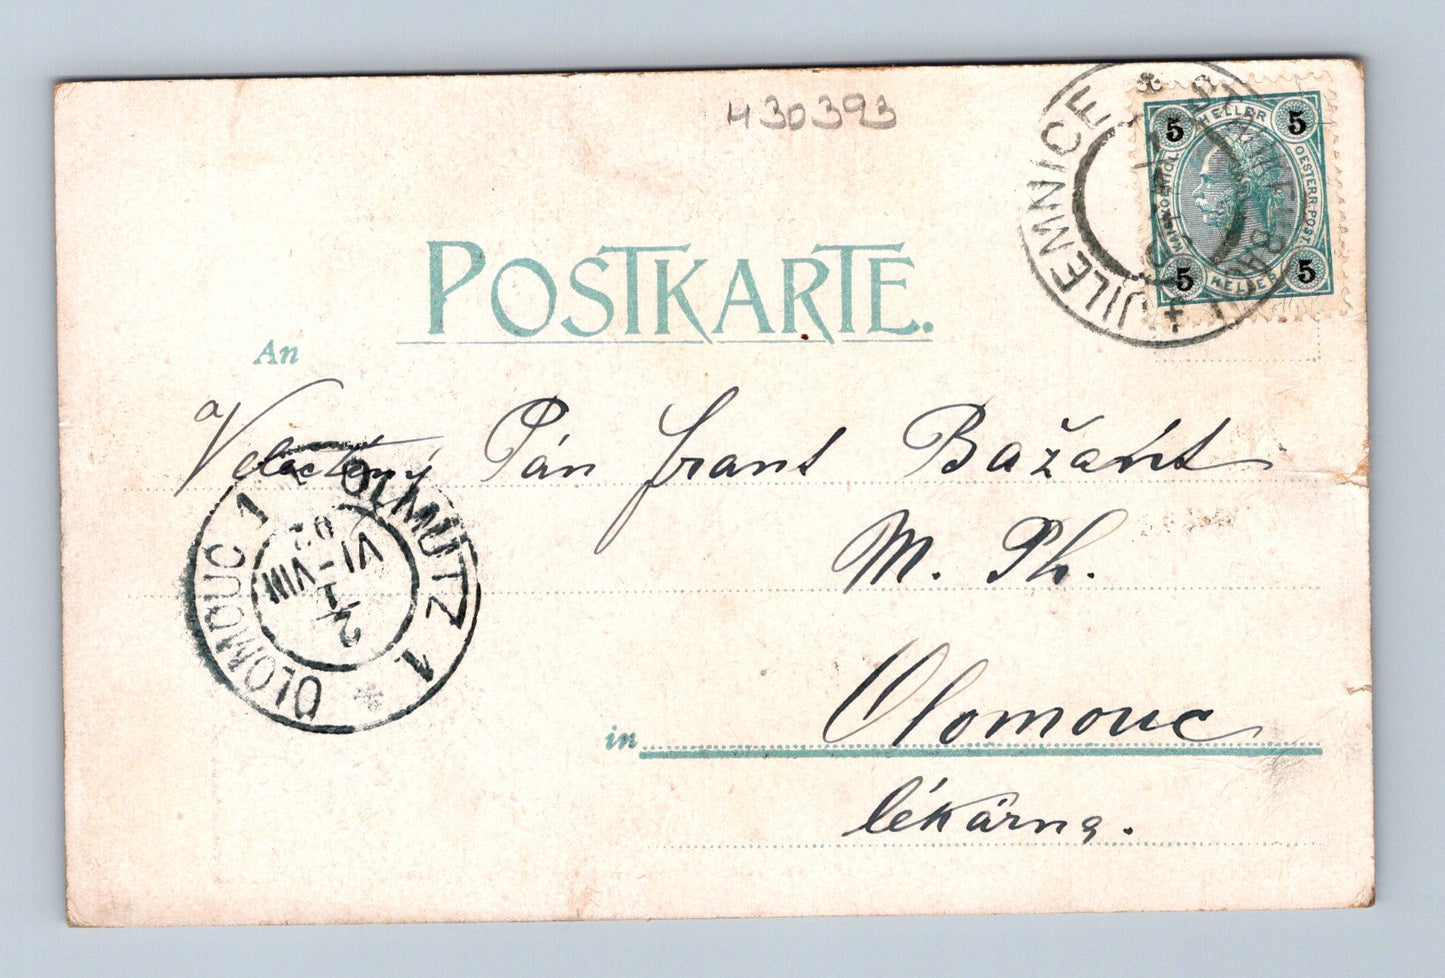 430393
JILEMNICE STARKENBACH
5 HELLER 5
KAIS. KOENIGL. OESTERR. POST.
5 HELLER 5
POSTKARTE.
An
Velactěný Pán Frant Bažant
M. Ph.
in Olomouc
lékárna.
OLMÜTZ 1
OLOMOUC 1
2
VI-VIII
02